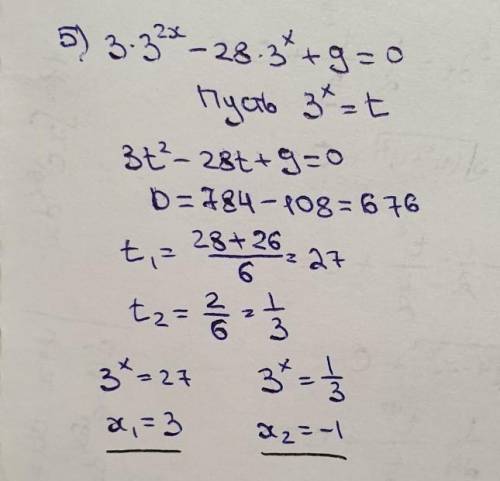 5) 3·3^{2x} − 28·3^x + 9 = 0
Пусть 3^x = t
3t² − 28t + 9 = 0
D = 784 − 108 = 676
t₁ = \frac{28+26}{6} = 27
t₂ = \frac{2}{6} = \frac{1}{3}
3^x = 27    3^x = \frac{1}{3}
x₁ = 3    x₂ = −1